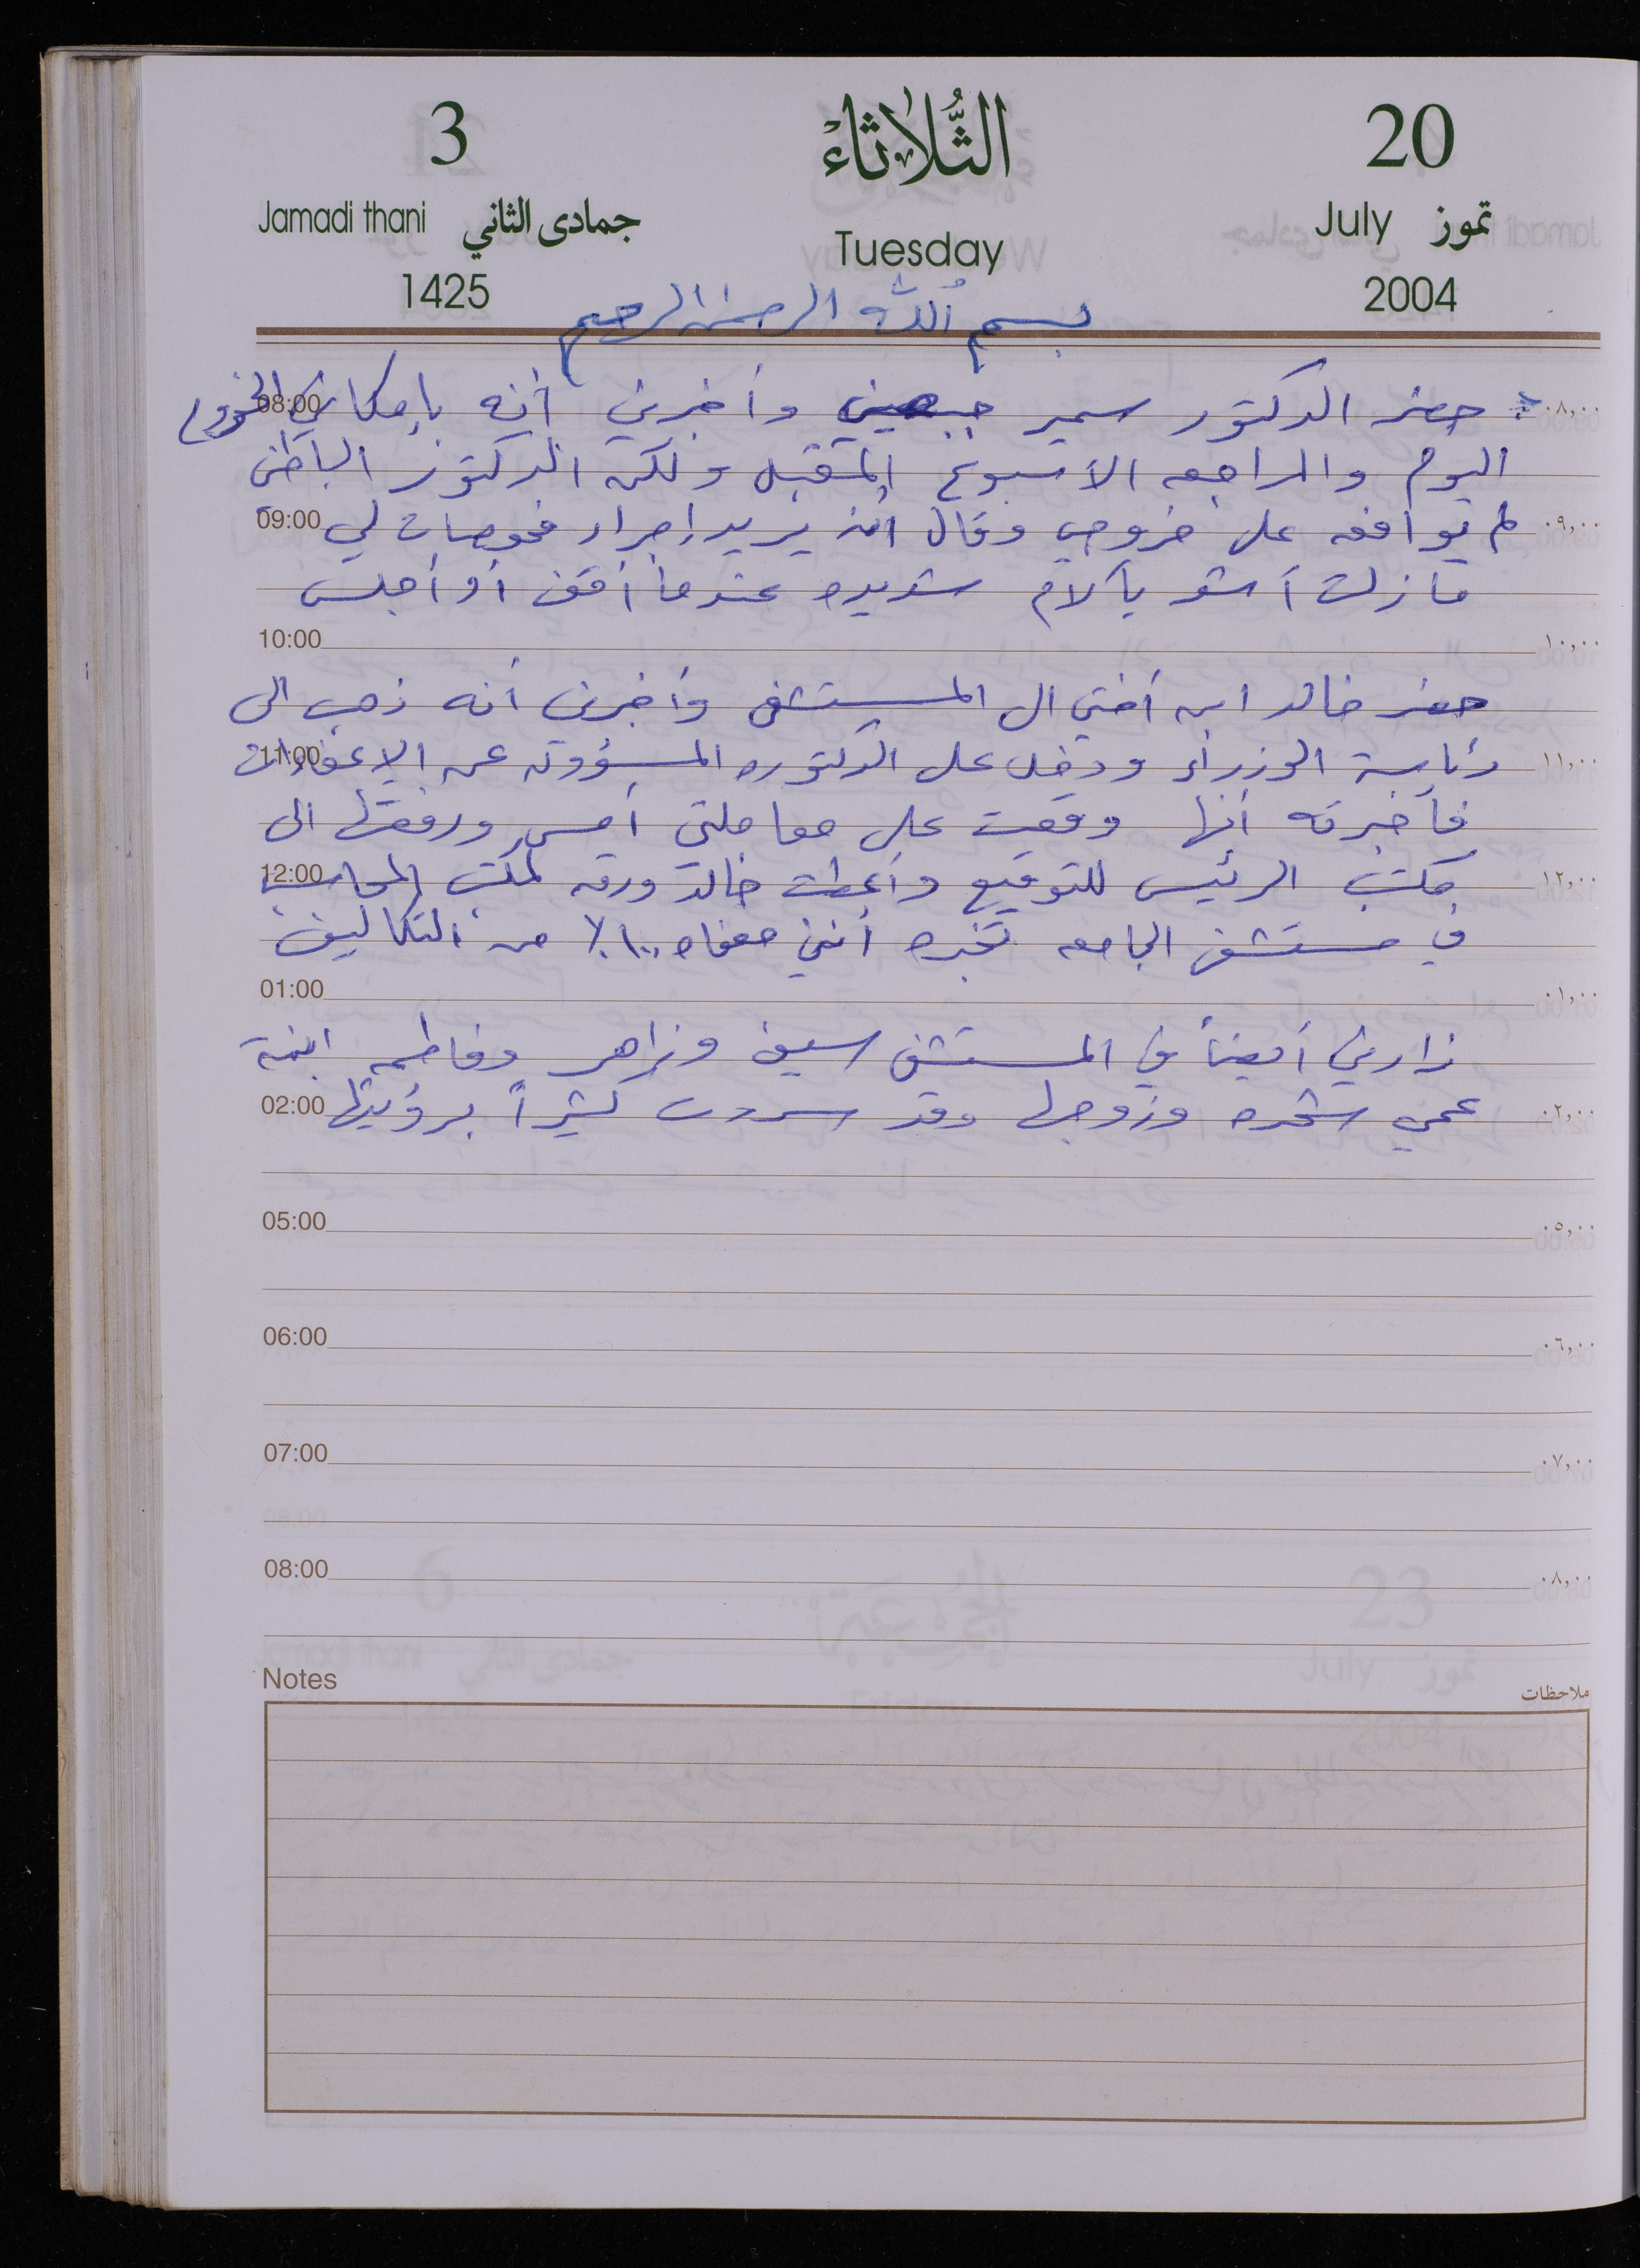 3 الثُّلاثاء 20
Jamadi thani جمادى الثاني Tuesday July تموز
1425 2004
بسم الله الرحمن الرحيم
08:00 حضر الدكتور سمير وأخبرني أنه بإمكاني الخروج ٠٨,٠٠
اليوم والمراجعه الأسبوع المقبل ولكن الدكتور الباطني
09:00 لم يوافق على خروجي وقال أنه يريد إجراء فحوصات لي ٠٩,٠٠
ما زلت أشعر بآلام شديده عندما أقف أو أجلس
10:00 ١٠,٠٠
حضر خالد ابن أختي الى المستشفى وأخبرني أنه ذهب الى
11:00 رئاسة الوزراء ودخل على الدكتوره المسؤوله عن الإعفاءات ١١,٠٠
فأخبرته أنها وقعت على معاملتي أمس ورفعتها الى
12:00 مكتب الرئيس للتوقيع وأعطت خالد ورقه لمكتب المحاسبه ١٢,٠٠
في مستشفى الجامعه تخبره أنني معفاه ١٠٠٪ من التكاليف
01:00 ٠١,٠٠
زارني أيضاً في المستشفى سيف وزاهر وفاطمه ابنة
02:00 عمي وزوجها وقد سررت كثيراً برؤيتها ٠٢,٠٠
05:00 ٠٥,٠٠
06:00 ٠٦,٠٠
07:00 ٠٧,٠٠
08:00 ٠٨,٠٠
Notes ملاحظات